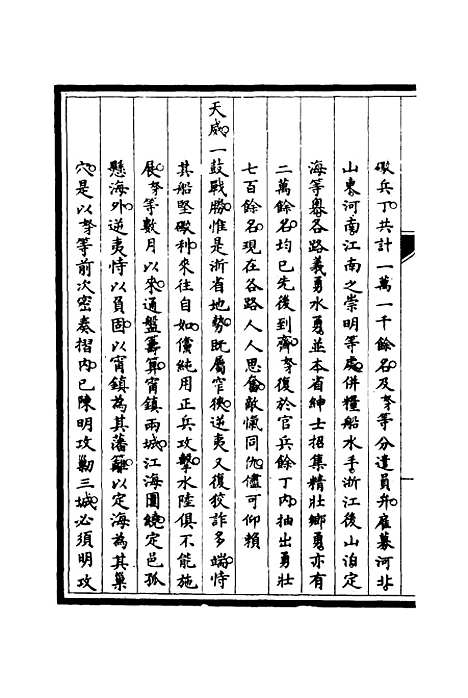 礮兵丁共計一萬一千餘名及奴才等分遣員弁雇募河北
山東河南江南之崇明等處併糧船水手浙江後山泊定
海等嶴各路義勇水勇並本省紳士招集精壯鄉勇亦有
二萬餘名均已先後到齊奴才復於官兵餘丁內抽出勇壯
七百餘名現在各路人人思奮敵愾同仇儘可仰賴
天威一鼓戰勝惟是浙省地勢既屬窄狹逆夷又復狡詐多端恃
其船堅礮利來往自如儻純用正兵攻擊水陸俱不能施
展奴才等數月以來通盤籌算甯鎮兩城江海圍繞定邑孤
懸海外逆夷恃以負固以甯鎮為其藩籬以定海為其巢
穴是以奴才等前次密奏摺內已陳明攻勦三城必須明攻